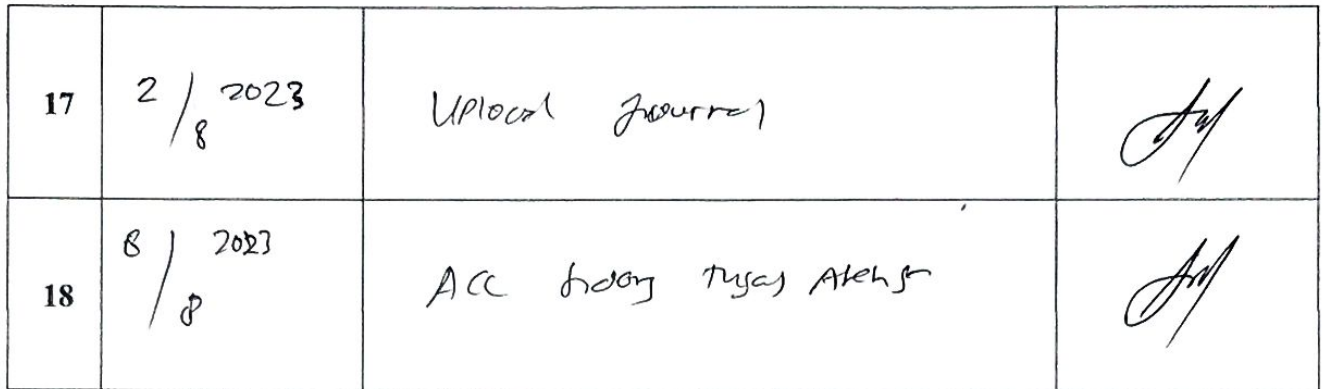 17 2/8 2023 Upload Journal
18 8/8 2023 ACC Sidang Tugas Akhir